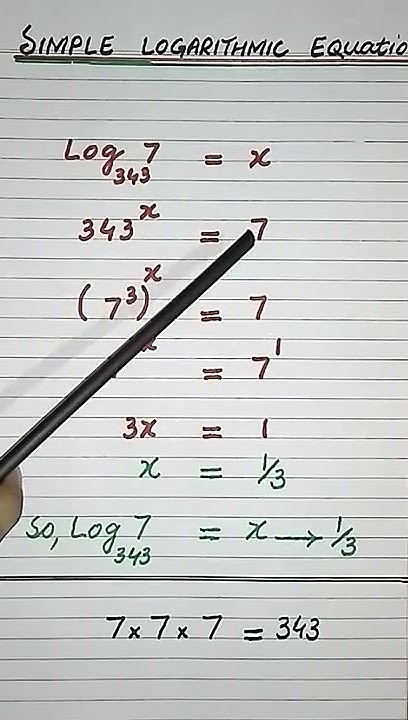 SIMPLE LOGARITHMIC EQUATIO
Log₃₄₃ 7 = x
343ˣ = 7
(7³)ˣ = 7
ˣ = 7¹
3x = 1
x = 1/3
So, Log₃₄₃ 7 = x → 1/3
7 x 7 x 7 = 343